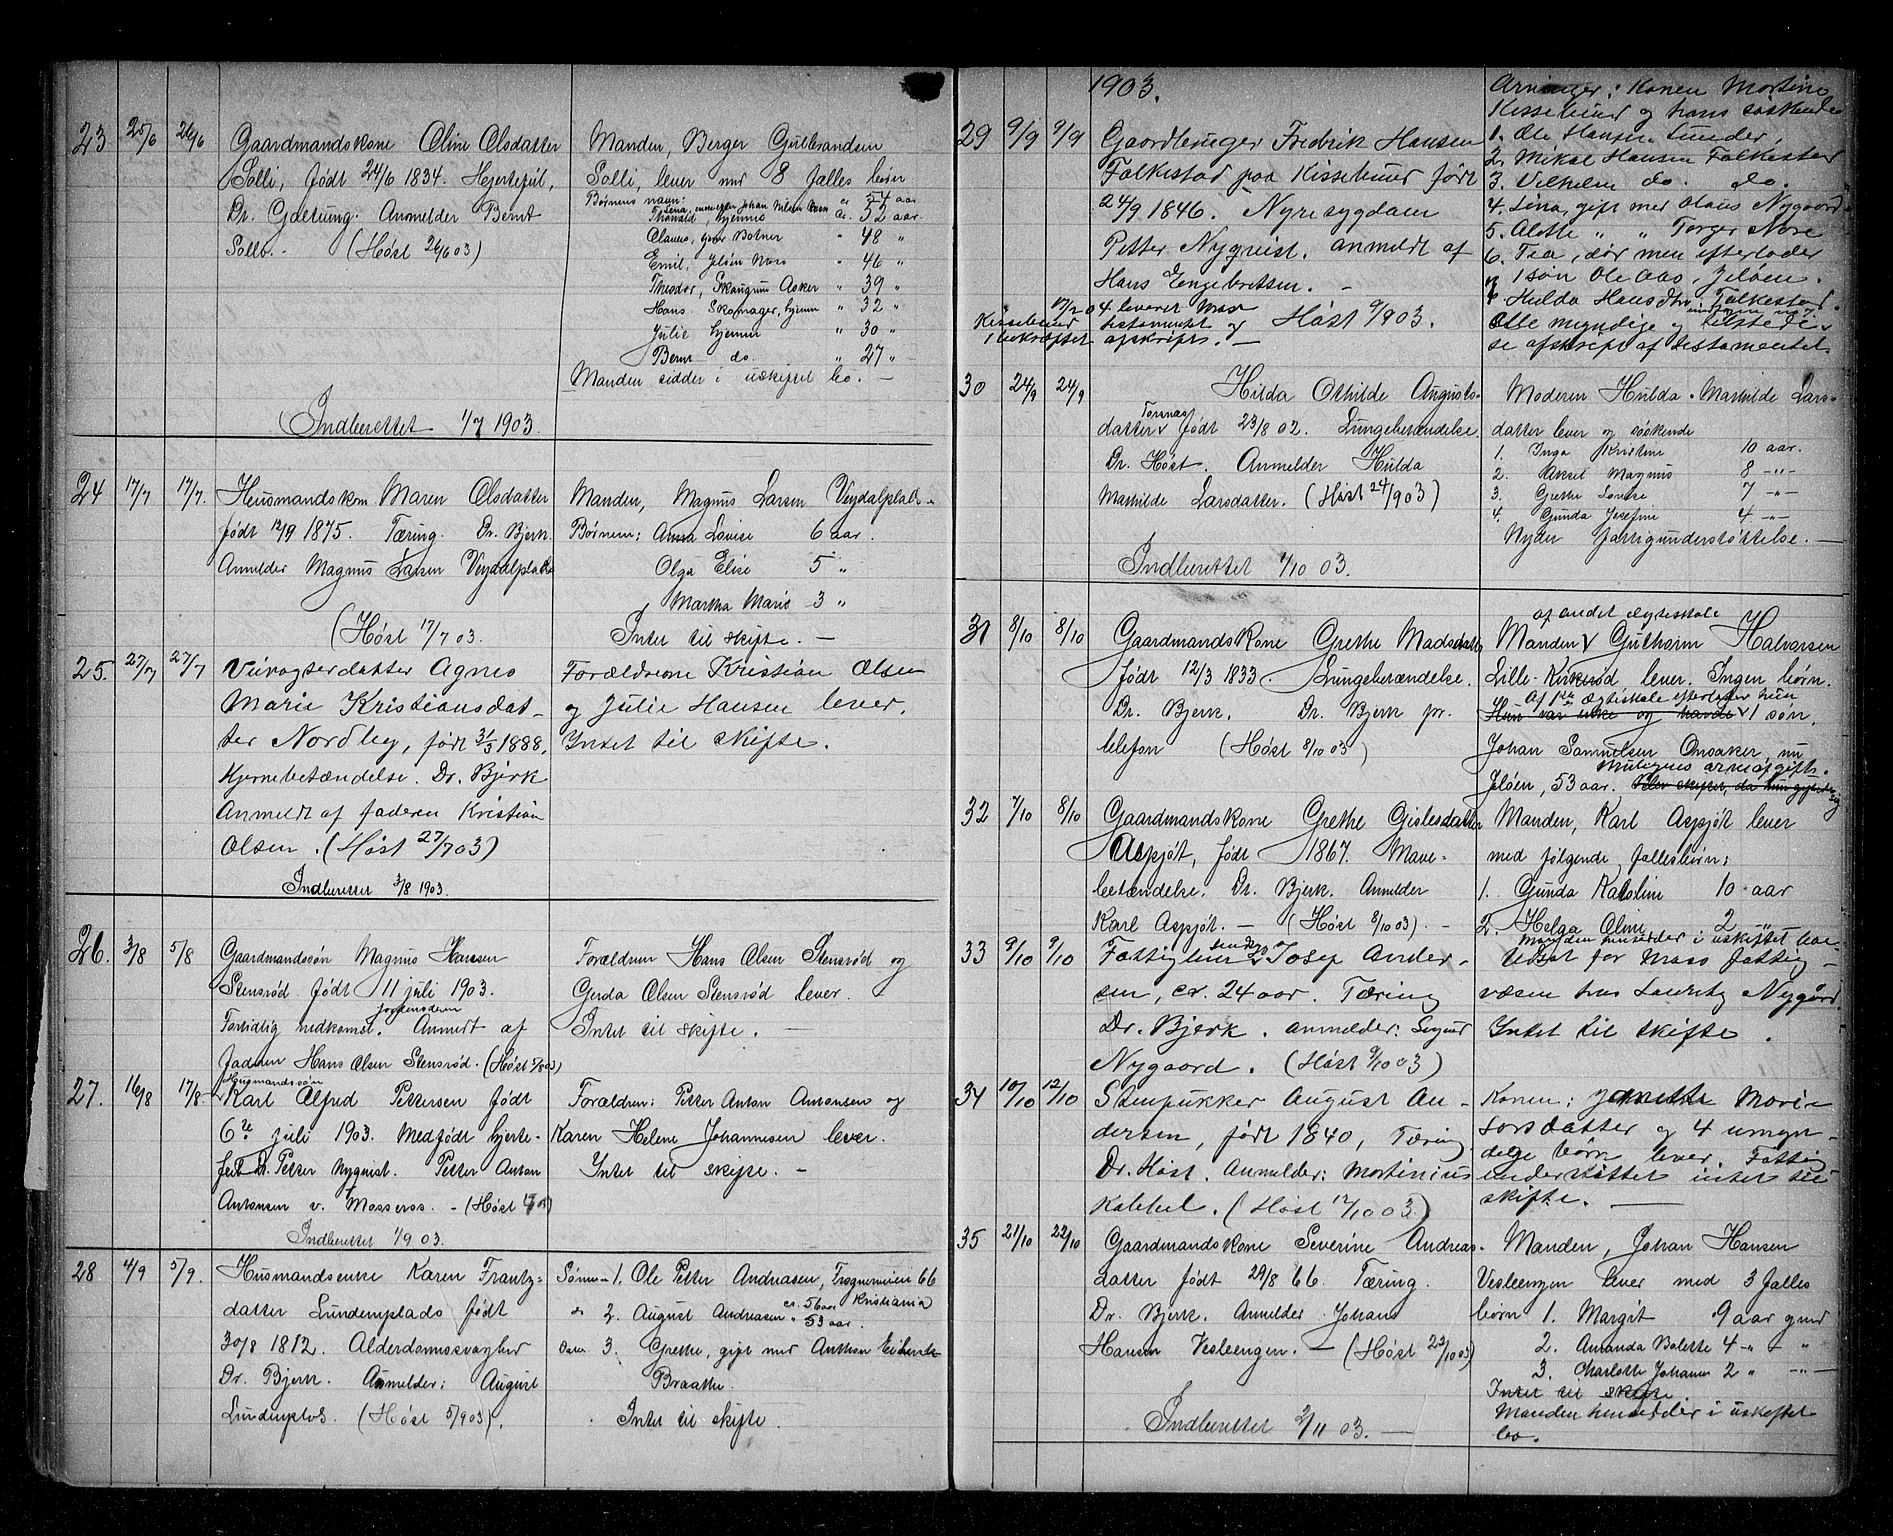 23 25/6 26/6 Gaardmandskone Oline Olsdatter
Solli, født 24/6 1834. Hjertefeil,
Dr. Gdetung. Anmelder Bernt
Solli. (Høst 26/6 03)
Manden, Berger Gulbrandsen
Solli, lever med 8 fælles børn
Børnens navn: Lina, Johan Nilsen 54 aar
Thorvald hjemme 52 aar
Olaves, Botner " 48 "
Emil, Jeløen Moss " 46 "
Theodor, Skaugum Asker " 39 "
Hans, Skomager, hjemme " 32 "
Julie hjemme " 30 "
Bernt do. " 27 "
Manden sidder i uskiftet bo. —
Indberettet 1/7 1903.
24 17/7 17/7. Husmandskone Maren Olsdatter
født 12/9 1875. Tæring. Dr. Bjerk.
Anmelder Magnus Larsen Vejdalplads
(Høst 17/7 03.
Manden, Magnus Larsen Vejdalplads
Børnene: Anna Lovise 6 aar.
Olga Elise 5 "
Martha Marie 3 "
Intet til skifte. —
25. 27/7 27/7 Veivogterdatter Agnes
Marie Kristiansdat-
ter Nordby, født 31/3 1888,
Hjernebetændelse. Dr. Bjerk
Anmeldt af faderen Kristian
Olsen. (Høst 27/7 03)
Forældrene Kristian Olsen
og Julie Hansen lever.
Intet til skifte.
Indberettet 3/8 1903.
26. 3/8 5/8 Gaardmandssøn Magnus Hansen
Stensrød født 11 juli 1903.
Fortidlig nedkomst. Anmeldt af
faderen Hans Olsen Stensrød. (Høst 5/8 03)
Forældrene Hans Olsen Stensrød og
Gerda Olsen Stensrød lever.
Intet til skifte. —
27. 16/8 17/8 Husmandssøn
Karl Alfred Pettersen født
6te juli 1903. Medfødt hjerte-
feil Dr. Petter Nyquist. Petter Anton
Antonsen v. Mosseros. - (Høst
Forældrene: Petter Anton Antonsen og
Karen Helene Johannesen lever.
Intet til skifte. —
Indberettet 1/9 03.
28 4/9 5/9. Husmandsenke Karen Frantz-
datter Lundenplads født
30/8 1812. Alderdomssvaghed
Dr. Bjerk. Anmelder: August
Lundenplds. (Høst 5/9 03).
Sønne 1. Ole Petter Andreasen, Trognerveien 66
cr. 56 aar Kristiania
2. August Andreasen " 53 aar.
Dater 3. Grethe, gift med Anthon
Braathe.
Intet til skifte.
1903.
29 9/9 9/9 Gaardbruger Fredrik Hansen
Falkestad paa Kissebund født
24/9 1846. Nyresygdom
Petter Nyqvist. anmeldt af
Hans Engebretsen. —
17/2 04 leveret Moss
Kissebund testamentet og Høst 9/9 03.
i bekræftet afskrift. —
Arvinger: Konen Martine
Kissebund og hans søskende
1. Ole Hansen Sunder,
2. Mikal Hansen Falkestad
3. Vilhelm do. do.
4. Lina, gift med Olaus Nygaard
5. Alette " " Torger Nore
6. Tea, dør men efterlader
1 søn Ole Aas, Jeløen.
7. Hulda Hansdtr. Falkestad.
Alle myndige og tilstede
se afskrift af testamentet.
30 24/9 24/9 Hilda Othilde Augusts-
datter Torsnæs født 23/8 02. Lungebetændelse
Dr. Høst. Anmelder Hulda
Mathilde Larsdatter. (Høst 24/9 03)
Moderen Hulda Mathilde Lars-
datter lever og søskende
1. Inga Kristine 10 aar.
2. Aksel Magnus 8 -"-
3. Grethe Lovise 7 -"-
4. Gunda Josefine 4 -"-
Nyder fattigunderstøttelse. —
Indberettet 1/10 03.
31 8/10 8/10 Gaardmandskone Grethe Madsdatter
født 12/3 1833. Lungebetændelse.
Dr. Bjerk. Dr. Bjerk pr.
telefon (Høst 8/10 03)
af andet ægteskab
Manden Guthorm Halvorsen
Lille-Kirkerød lever. Ingen børn.
Af 1ste ægteskab efterlader hun
Hun var enke og havde 1 søn,
Johan Samuelsen Onsaker, nu
Muligens arveafgift.
Jeløen, 53 aar.
32 7/10 8/10 Gaardmandskone Grethe Gislesdatter
Aspjøt, født 1867. Mave-
betændelse. Dr. Bjerk. Anmelder
Karl Aspjøt. — (Høst 8/10 03). -
Manden, Karl Aspjøt lever
med følgende fællesbørn:
1. Gunda Karoline 10 aar
2. Helga Oline 2 -"-
Manden hensidder i uskiftet bo
33 9/10 9/10 Fattiglem Josef Ander-
sen, cr. 24 aar. Tæring
Dr. Bjerk. anmelder: Sigurd
Nygaard. (Høst 9/10 03)
Udsat for Moss fattig-
væsen hos Lauritz Nygård
Intet til skifte.
34 10/10 12/10 Stenpukker August An-
dersen, født 1840, Tæring
Dr. Høst. Anmelder: Martinius
Kabbel. (Høst 12/10 03)
Konen: Janette Mari-
dsdatter og 4 umyn-
dige børn lever. Fattig
understøttet intet til
skifte. —
35 21/10 22/10 Gaardmandskone Severine Andreas-
datter født 29/8 66. Tæring.
Dr. Bjerk. Anmelder Johans
Hansen Vesleengen. — (Høst 22/10 03)
Manden, Johan Hansen
Vesleengen lever med 3 fælles
børn 1. Margit 9 aar gml
2. Amanda Balette 4 -"- "
3. Charlotte Johanne 2 " -"-
Intet til skifte.
Manden hensidder i uskiftet
bo.
Indberettet 2/11 03. —